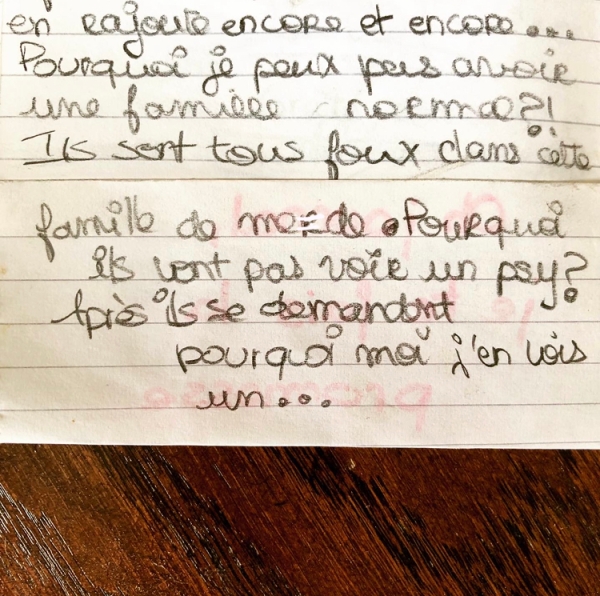 en rajoute encore et encore...
Pourquoi je peux pas avoir
une famille normal?!
Ils sont tous foux dans cette
famille de merde. Pourquoi
ils vont pas voir un psy?
Après ils se demandent
pourquoi moi j'en vois
un...